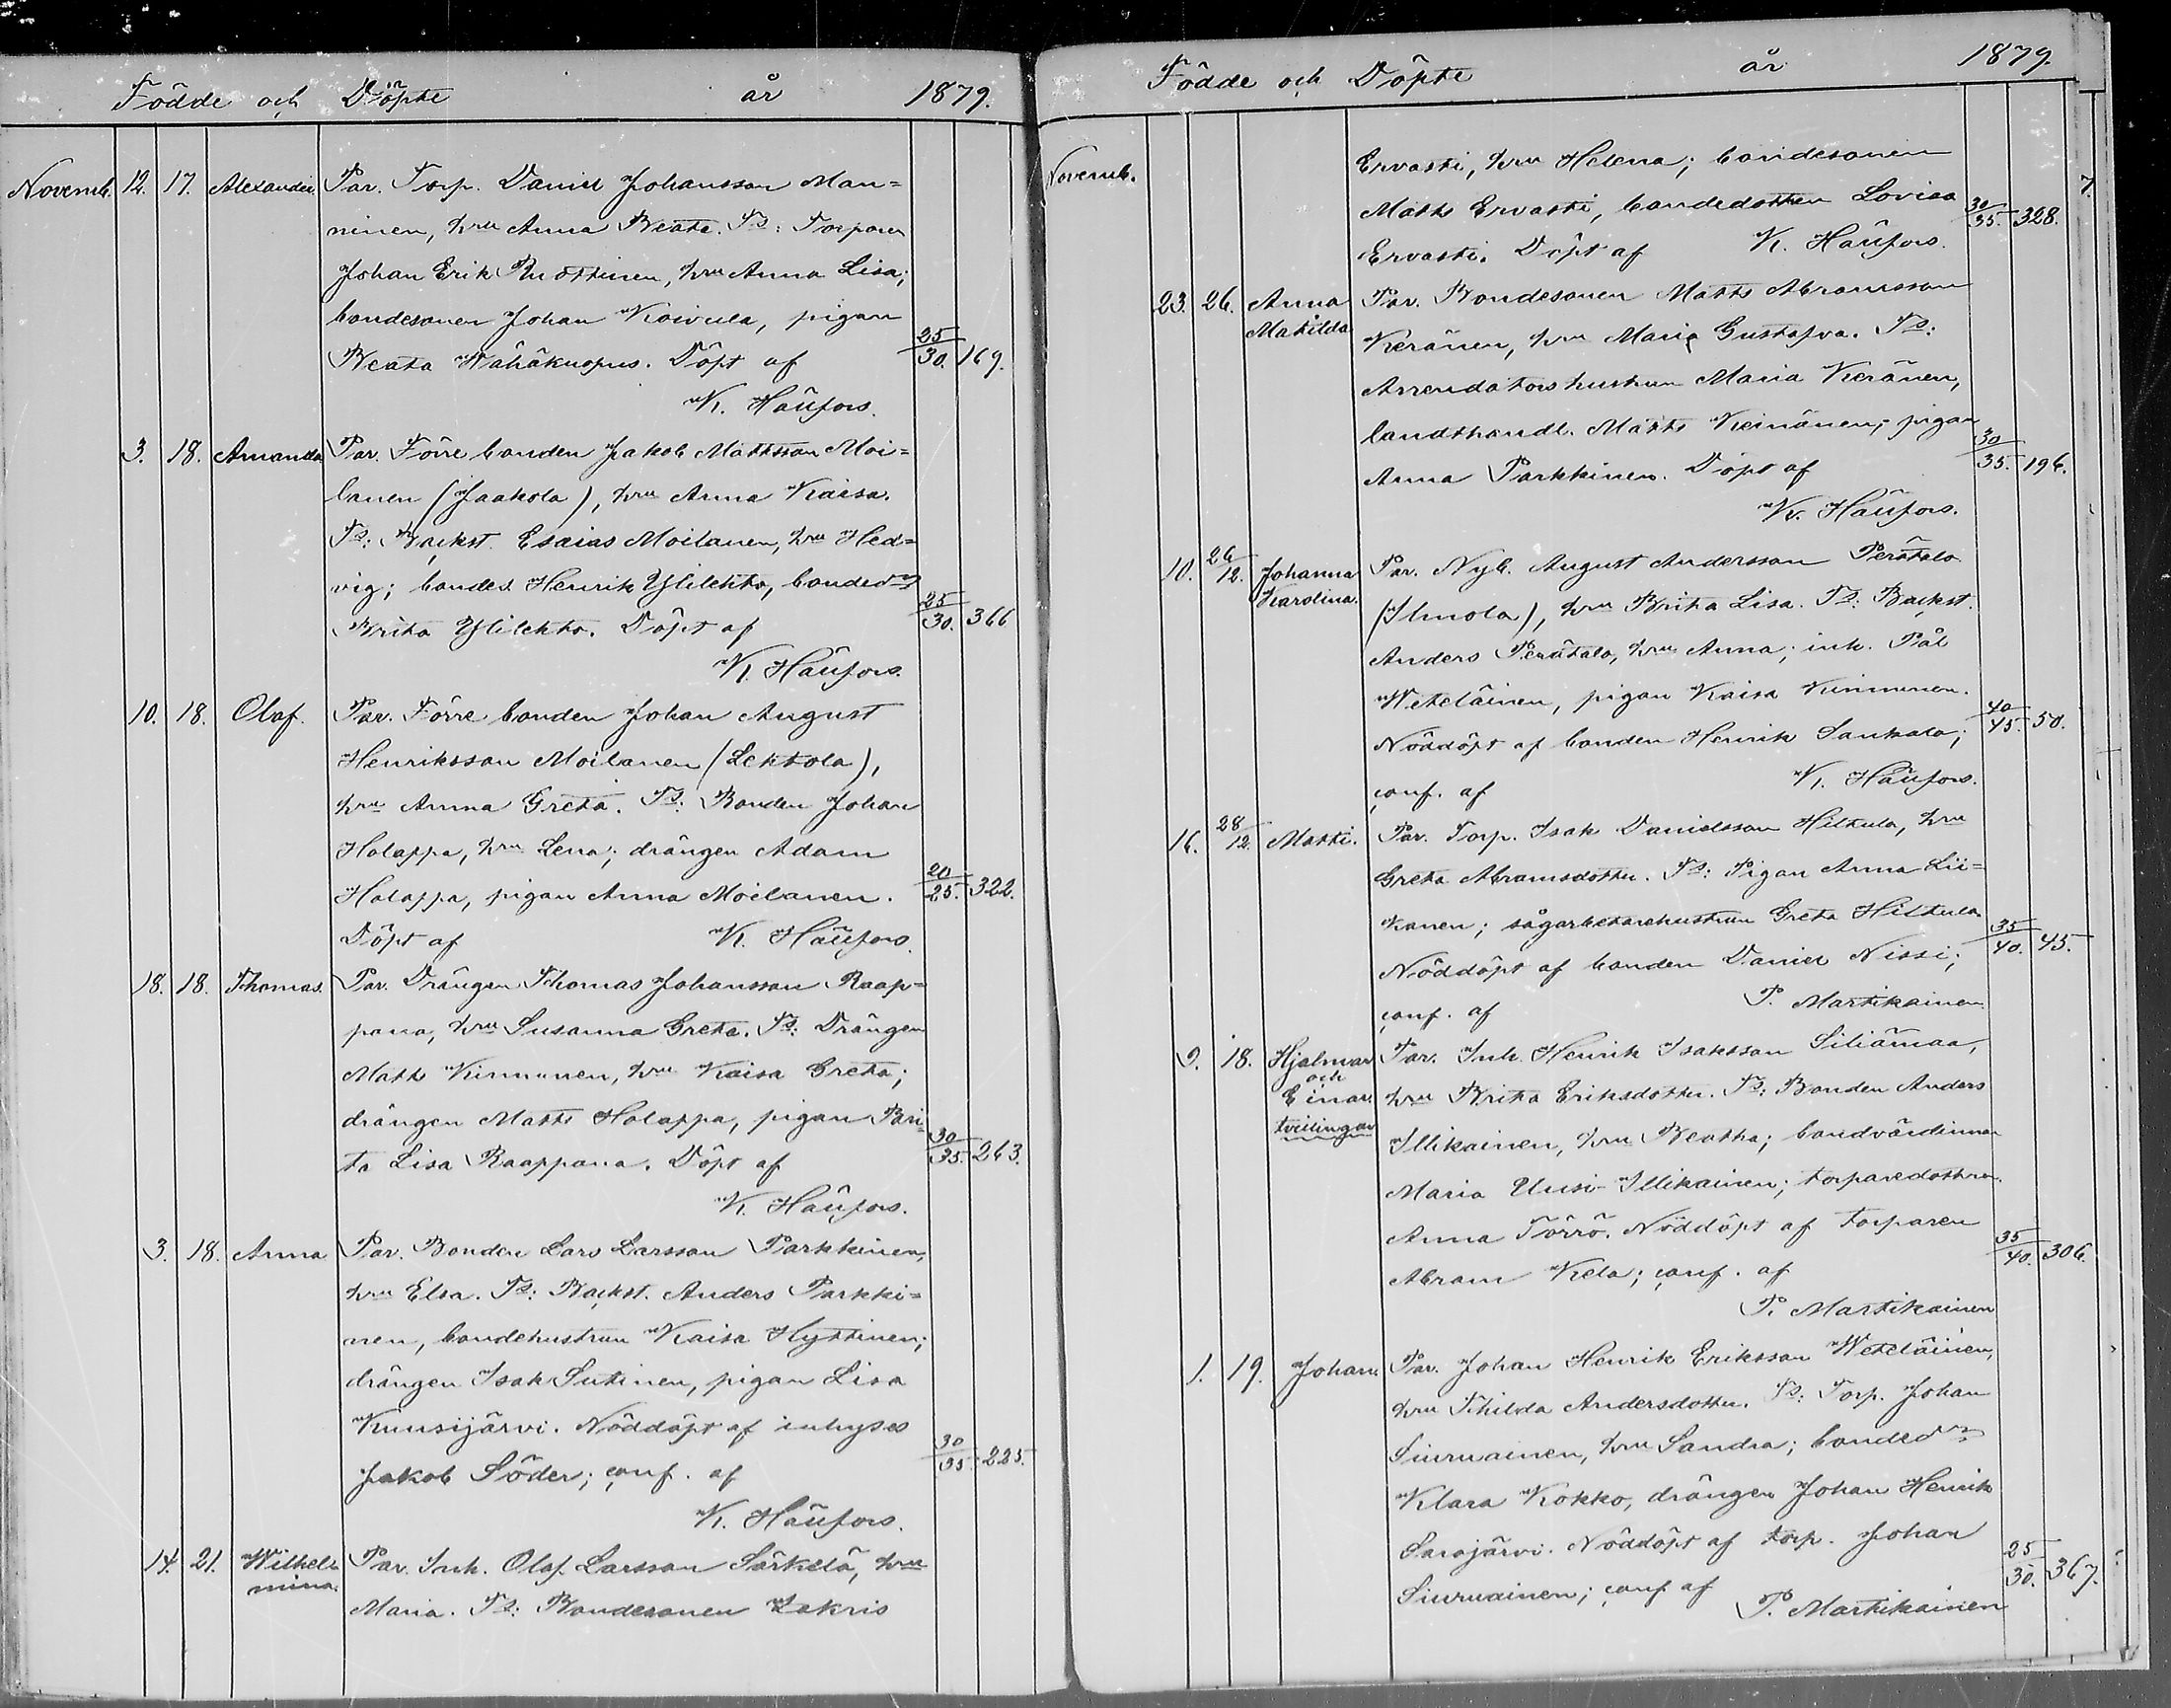 Födde och Döpte år 1879.
Novemb. 12. 17. Alexander. Par. Torp. Daniel Johansson Man=
ninen, hru Anna Beata. Ts: Torparen
Johan Erik Ruottinen, hru Anna Lisa;
bondesonen Johan Koivula, pigan
Beata Wähäkuopus. Döpt af 25/30. 169.
K. Häufors.
3. 18. Amanda Par. Förre bonden Jakob Mattsson Moi=
lanen (Jaakola), hru Anna Kaisa.
Ts: Backst. Esaias Moilanen, hru Hed=
vig; bondes. Henrik Ylilehto, bonded.
Brita Ylilehto. Döpt af 25/30. 366
K. Häufors.
10. 18. Olof. Par. Förre bonden Johan August
Henriksson Moilanen (Lehtola),
hru Anna Greta. Ts: Bonden Johan
Holappa, hru Lena; drängen Adam
Holappa, pigan Anna Moilanen. 20/25. 322.
Döpt af K. Häufors.
18. 18. Thomas. Par. Drängen Thomas Johansson Raap=
pana, hru Susanna Greta. Ts: Drängen
Matts Kinnunen, hru Kaisa Greta;
drängen Matts Holappa, pigan Bri=
ta Lisa Raappana. Döpt af 30/35. 263.
K. Häufors.
3. 18. Anna Par. Bonden Lars Larsson Parkkinen,
hru Elsa. Ts: Backst. Anders Parkki=
nen, bondehustrun Kaisa Hyttinen;
drängen Isak Sutinen, pigan Lisa
Kuusijärvi. Nöddöpt af inhyses
Jakob Söder; conf. af 30/35. 225.
K. Häufors.
14. 21. Wilhel= Par. Inh. Olof Larsson Särkelä, hru
mina. Maria. Ts: Bondesonen Zakris
Födde och Döpte år 1879.
Novemb. Ervasti, hru Helena; bondesonen
Matts Ervasti, bondedottren Lovisa 30/35. 328.
Ervasti. Döpt af K. Häufors.
23. 26. Anna Par. Bondesonen Matts Abramsson
Matilda Keränen, hru Maria Gustafva. Ts:
Arrendatorshustrun Maria Keränen,
landthandl. Matts Keinänen; pigan
Anna Parkkinen. Döpt af 30/35. 196.
K. Häufors.
10. 26/12. Johanna Par. Nyb. August Andersson Perätalo
Karolina. (Ilmola), hru Brita Lisa. Ts: Backst.
Anders Perätalo, hru Anna; inh. Pål
Weteläinen, pigan Kaisa Kinnunen.
Nöddöpt af bonden Henrik Sankala; 40/45. 50.
conf. af K. Häufors.
16. 28/12. Matti. Par. Torp. Isak Danielsson Hiltula, hru
Greta Abramsdotter. Ts: Pigan Anna Lii=
kanen; sågarbetarehustrun Greta Hiltula
Nöddöpt af bonden Daniel Nissi; 35/40. 45.
conf. af P. Martikainen
9. 18. Hjalmar Par. Inh. Henrik Isaksson Siliämaa,
och
Einar. hru Brita Eriksdotter. Ts: Bonden Anders
tvillingar Illikainen, hru Beatha; bondvärdinnan
Maria Uusi-Illikainen; torparedottren
Anna Törrö. Nöddöpt af torparen
Abram Kela; conf. af 35/40. 306.
P. Martikainen
1. 19. Johan Par. Johan Henrik Eriksson Weteläinen,
hru Thilda Andersdotter. Ts: Torp. Johan
Siuruainen, hru Sandra; bonded.
Klara Kokko, drängen Johan Henrik
Sarajärvi. Nöddöpt af torp. Johan
Siuruainen; conf. af 25/30. 367.
P. Martikainen
7.